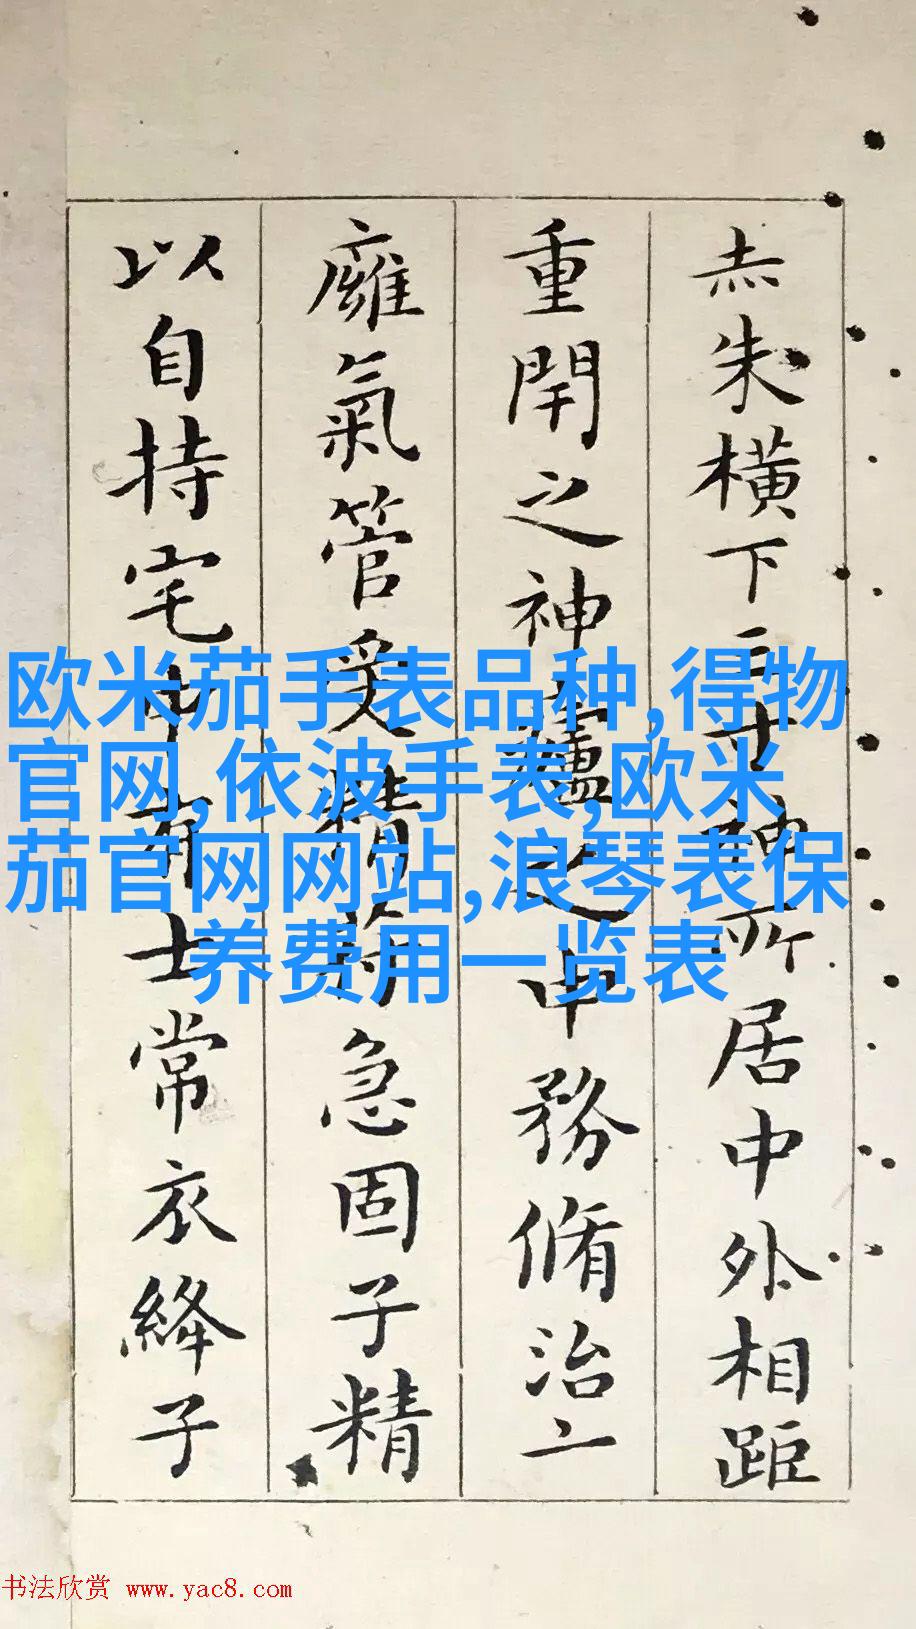 赤朱橫下三寸神所居中外相距
重閈之神廬之中務脩治亠
廱氣管受精符急固子精
以自持宅中有士常衣絳子
欧米茄手表品种,得物
官网,依波手表,欧米
茄官网网站,浪琴表保
养费用一览表
书法欣赏 www.yac8.com